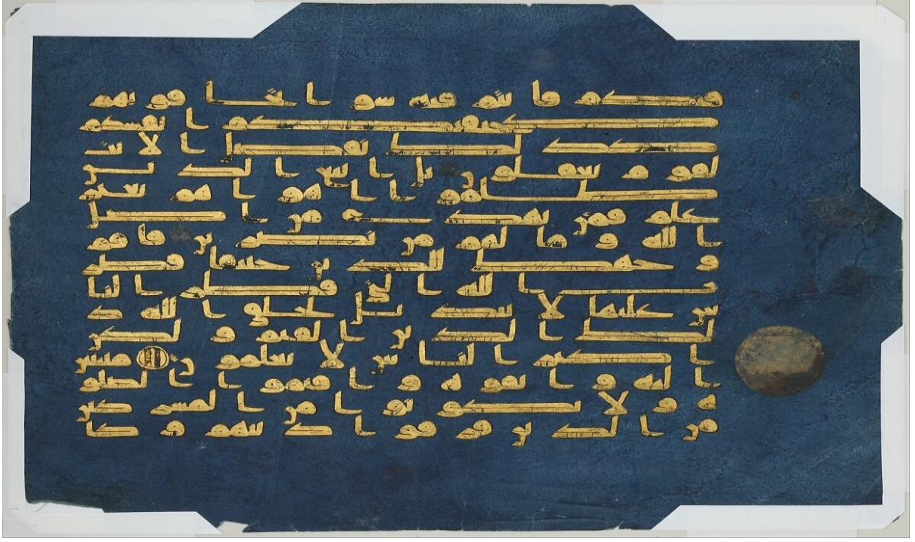 قنكم فانتم فيه سوا تخافونهم
كخيفتكم انفسكم
كذلك نفصل الايت
لقوم يعقلون بل اتبع الذين
ظلموا اهواهم بغير
علم فمن يهدي من اضل
الله وما لهم من نصرين فاقم
وجهك للدين حنيفا فطر
ت الله التي فطر الناس
عليها لا تبديل لخلق الله ذ
لك الدين القيم ولكن
اكثر الناس لا يعلمون منيبين
اليه واتقوه واقيموا الصلو
ه ولا تكونوا من المشركين
من الذين فرقوا دينهم وكا